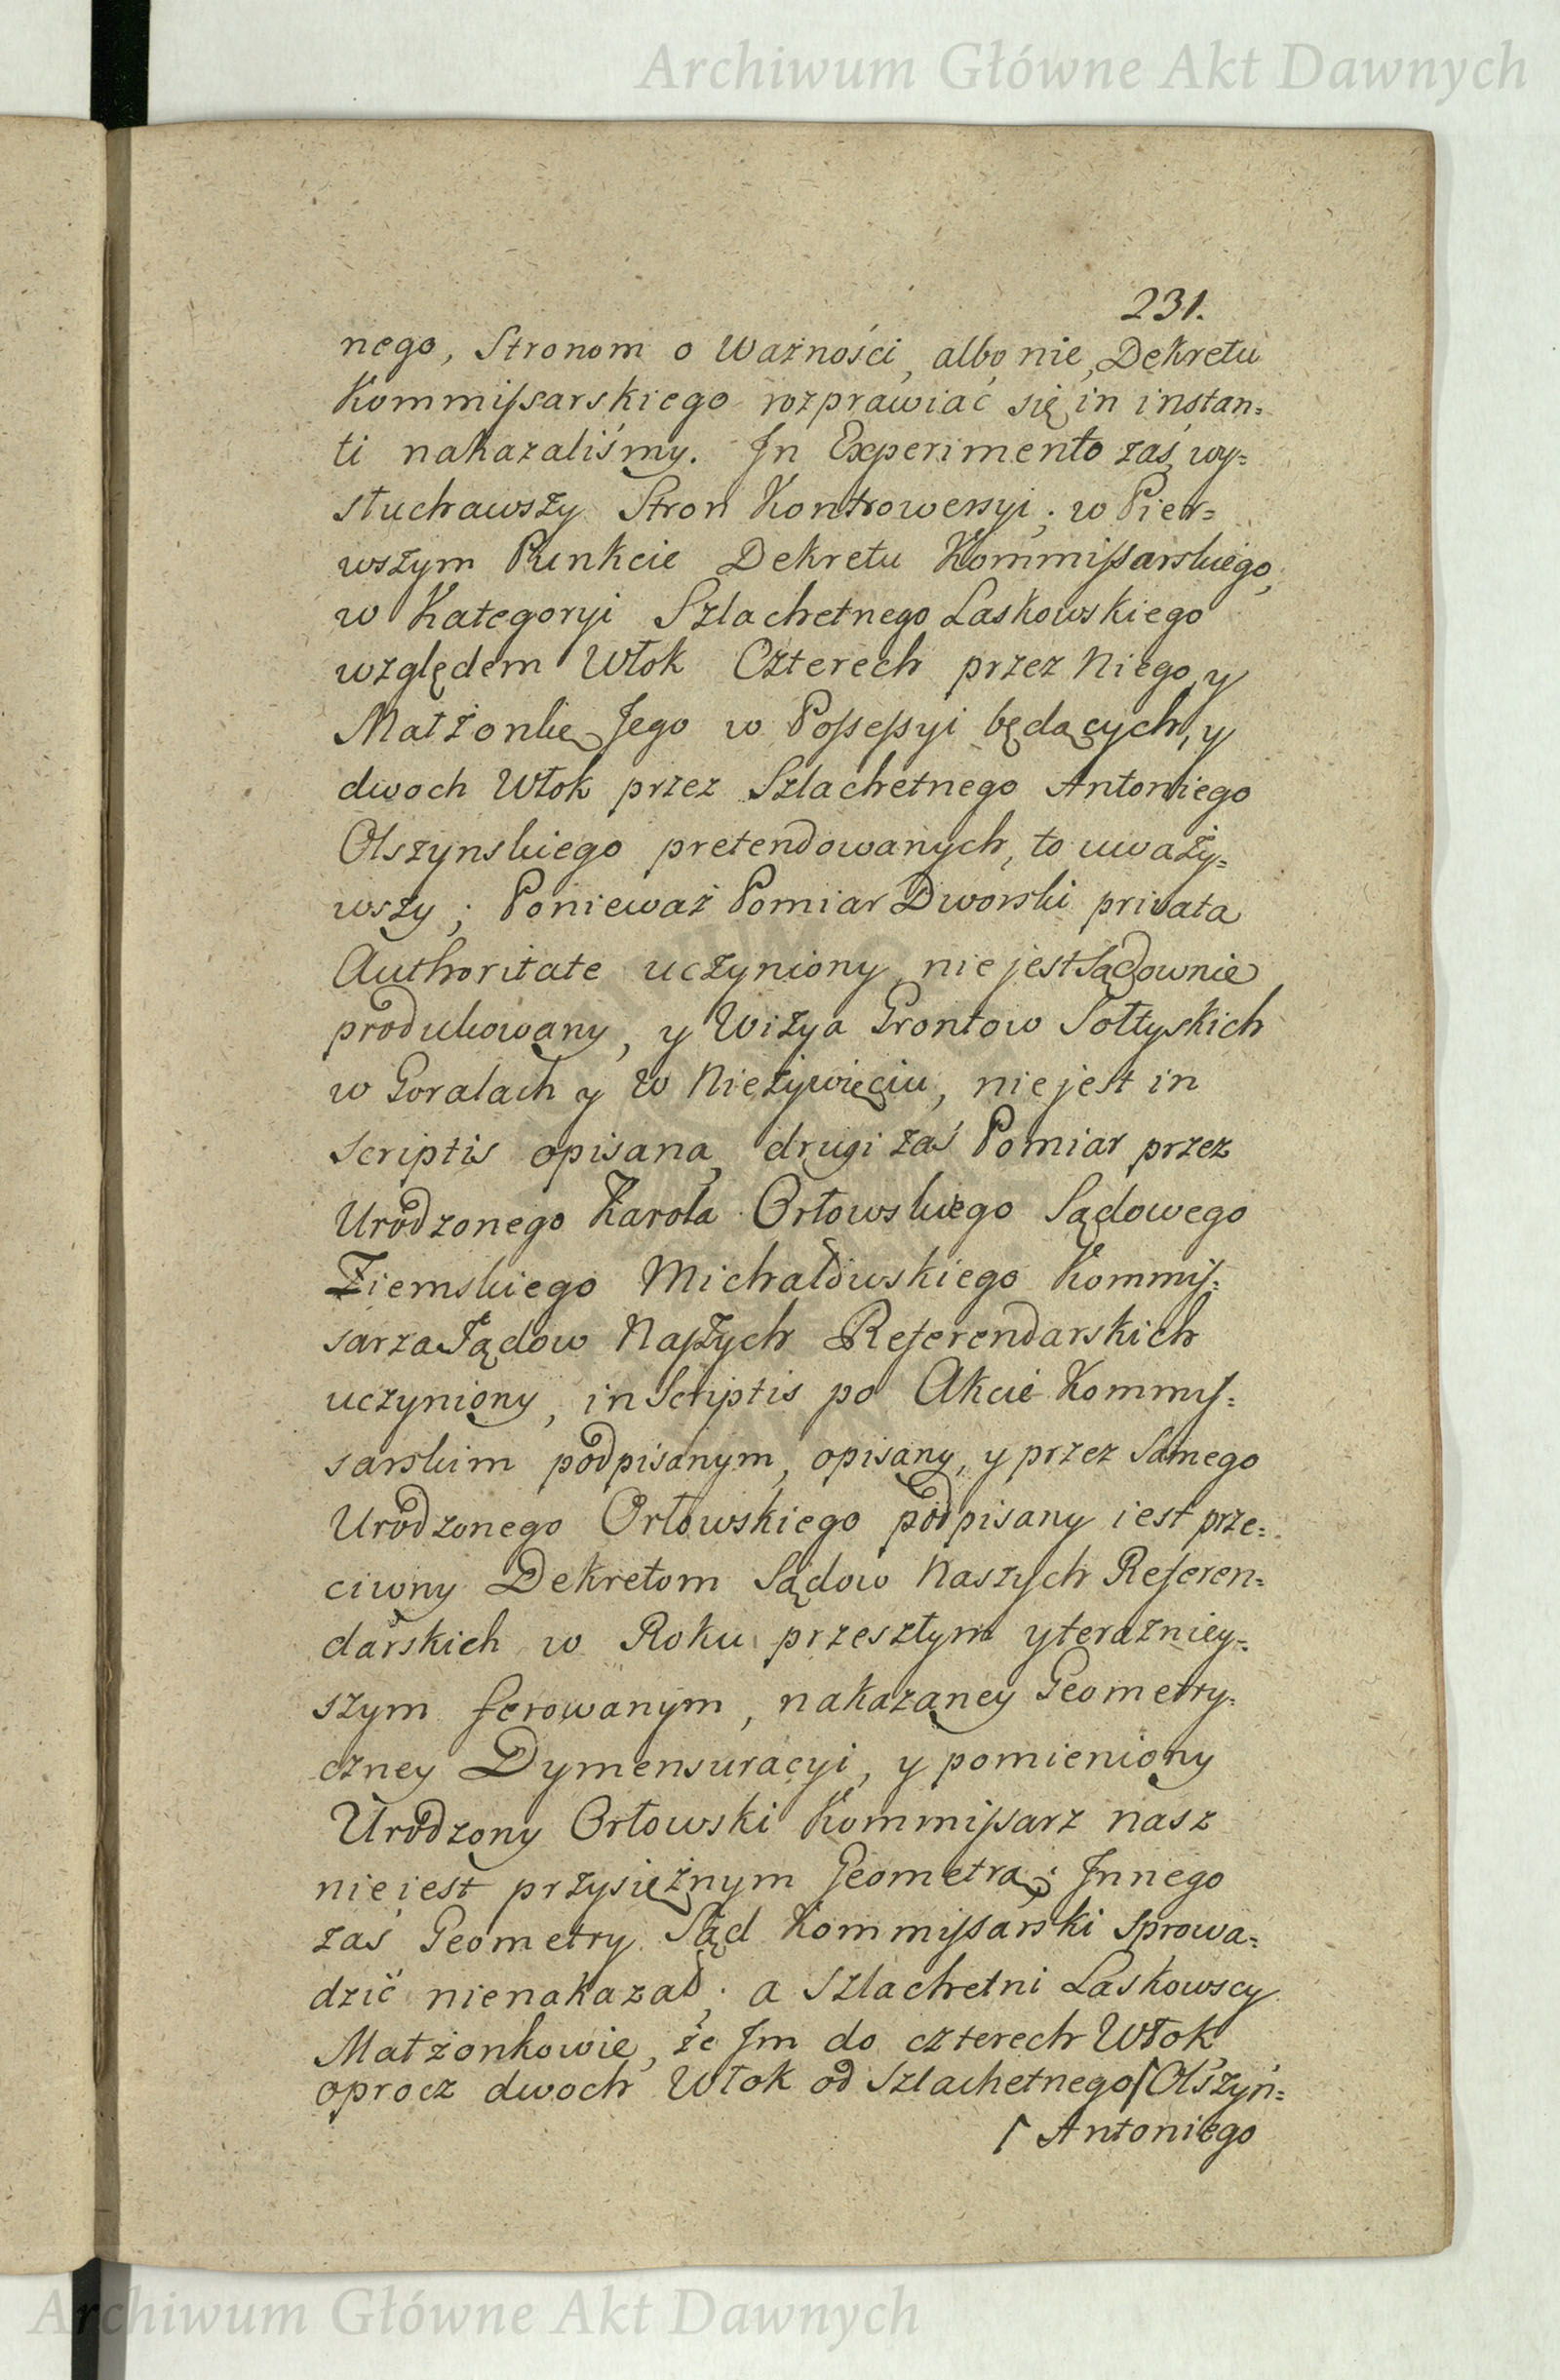 Archiwum Główne Akt Dawnych
231.
nego, Stronom o Ważności, albo nie, Dekretu
Kommissarskiego rozprawiać się in instan=
ti nakazaliśmy. Jn Experimento zaś wy=
słuchawszy Stron Kontrowersyi; w Pier=
wszym Punkcie Dekretu Kommissarskiego,
w Kategoryi Szlachetnego Laskowskiego
względem Włok Czterech przez Niego y
Małżonkę Jego w Possessyi będących, y
dwoch Włok przez Szlachetnego Antoniego
Olszynskiego pretendowanych, to uważy=
wszy; Ponieważ Pomiar Dworski privata
Authoritate uczyniony nie jest Sądownie
produkowany, y Wizya Grontow Sołtyskich
w Goralach y w Nieżywięciu, nie jest in
Scriptis opisana, drugi zaś Pomiar przez
Urodzonego Karola Orłowskiego Sądowego
Ziemskiego Michałowskiego Kommis=
sarza Sądow Naszych Referendarskich
uczyniony, in Scriptis po Akcie Kommis=
sarskim podpisanym, opisany, y przez Samego
Urodzonego Orłowskiego podpisany iest prze=
ciwny Dekretom Sądow Naszych Referen=
darskich w Roku przeszłym y terażniey=
szym ferowanym, nakazaney Geometry=
czney Dymensuracyi, y pomieniony
Urodzony Orłowski Kommissarz nasz
nie iest przysiężnym Geometrą; Jnnego
zaś Geometry Sąd Kommissarski Sprowa=
dzić nienakazał; a Szlachetni Laskowscy
Małżonkowie, że Jm do czterech Włok,
oprocz dwoch Włok od Szlachetnego ⌈ Olszyń=
⌈ Antoniego
Archiwum Główne Akt Dawnych